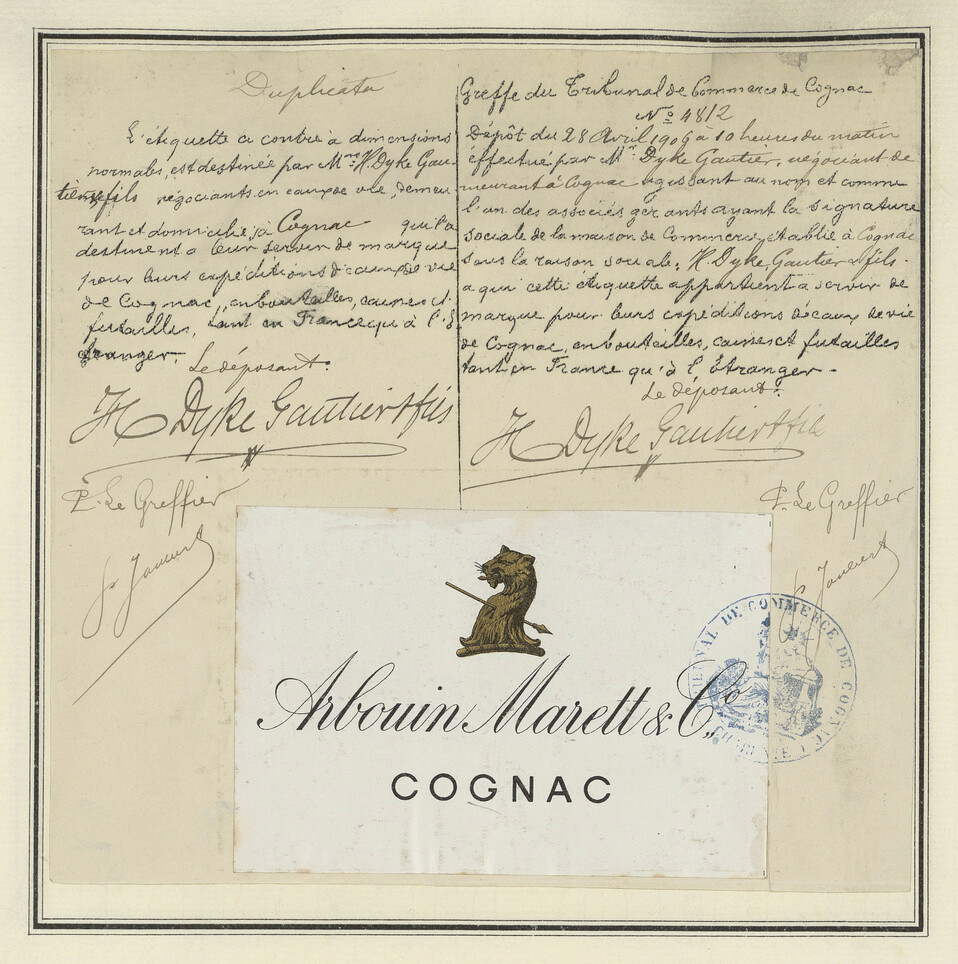 Duplicata
L'étiquette ci contre à dimensions
normales, est destinée par Mrs H. Dyke Gau-
tier & fils négociants en eaux de vie, demeu
rant et domicilié, à Cognac qu'ils
destinent à leur servir de marque
pour leurs expéditions d'eaux de vie
de Cognac, en bouteilles, caisses et
futailles, tant en France qu'à l'É
tranger.
Le déposant.
H Dyke Gautier & fils
P. Le Greffier
Greffe du Tribunal de Commerce de Cognac
No 4812
Dépôt du 28 Avril 1906 à 10 heures du matin
effectué par Mr Dyke Gautier, négociant de
meurant à Cognac agissant au nom et comme
l'un des associés gérants ayant la signature
sociale de la maison de Commerce, établie à Cognac
sous la raison sociale: H. Dyke, Gautier & fils.
a qui cette étiquette appartient a servir de
marque pour leurs expéditions d'eaux de vie
de Cognac, en bouteilles, caisses et futailles
tant en France qu'à l'Étranger.
Le déposant.
H Dyke Gautier & fils
P. Le Greffier
Arbouin Marett & Co,
COGNAC
TRIBUNAL DE COMMERCE DE COGNAC